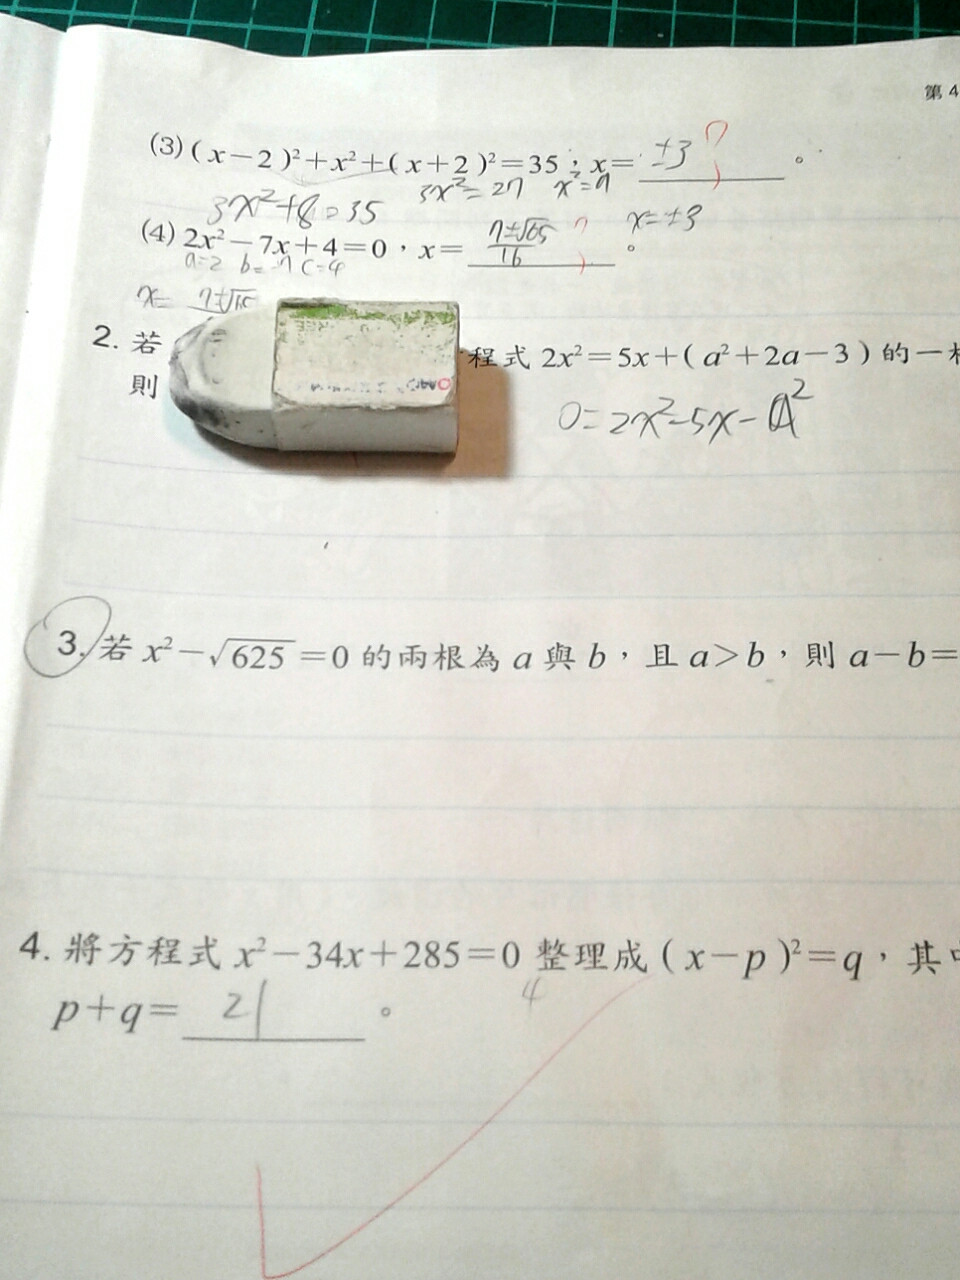 第4
(3)(x-2)²+x²+(x+2)²=35,x= ±3 。
3x²+8=35 3x²=27 x²=9
x=±3
(4) 2x²-7x+4=0,x= 。
a=2 b=-7 c=4
x=
2. 若 程式 2x²=5x+(a²+2a-3)的一
則
0=2x²-5x-a²
3. 若 x²-√625=0 的兩根為 a 與 b,且 a>b,則 a-b=
4. 將方程式 x²-34x+285=0 整理成(x-p)²=q,其
4
p+q= 21 。